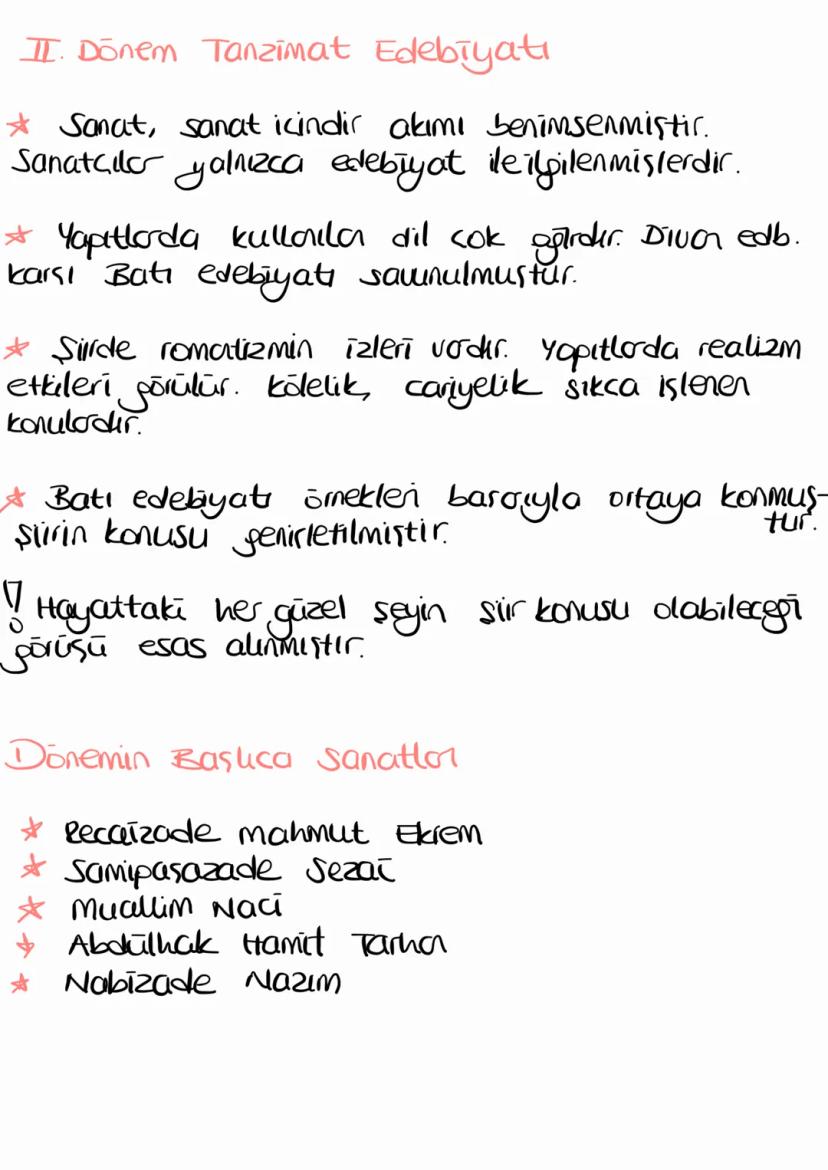 II. Dönem Tanzimat Edebiyatı
★ Sanat, sanat içindir akımı benimsenmiştir.
Sanatçılar yalnızca edebiyat ile ilgilenmişlerdir.
★ Yapıtlarda kullanılan dil çok ağırdır. Divan edb.
karşı Batı edebiyatı savunulmuştur.
★ Şiirde romatizmin izleri vardır. Yapıtlarda realizm
etkileri görülür. Kölelik, cariyelik sıkca işlenen
konulardır.
★ Batı edebiyatı örnekleri başarıyla ortaya konmuş-
tur.
şiirin konusu genişletilmiştir.
! Hayattaki her güzel şeyin şiir konusu olabileceği
görüşü esas alınmıştır.
Dönemin Başlıca Sanatlar
★ Recaizade mahmut Ekrem
★ Samipaşazade Sezai
★ Muallim Naci
★ Abdülhak Hamit Tarhan
★ Nabizade Nazım